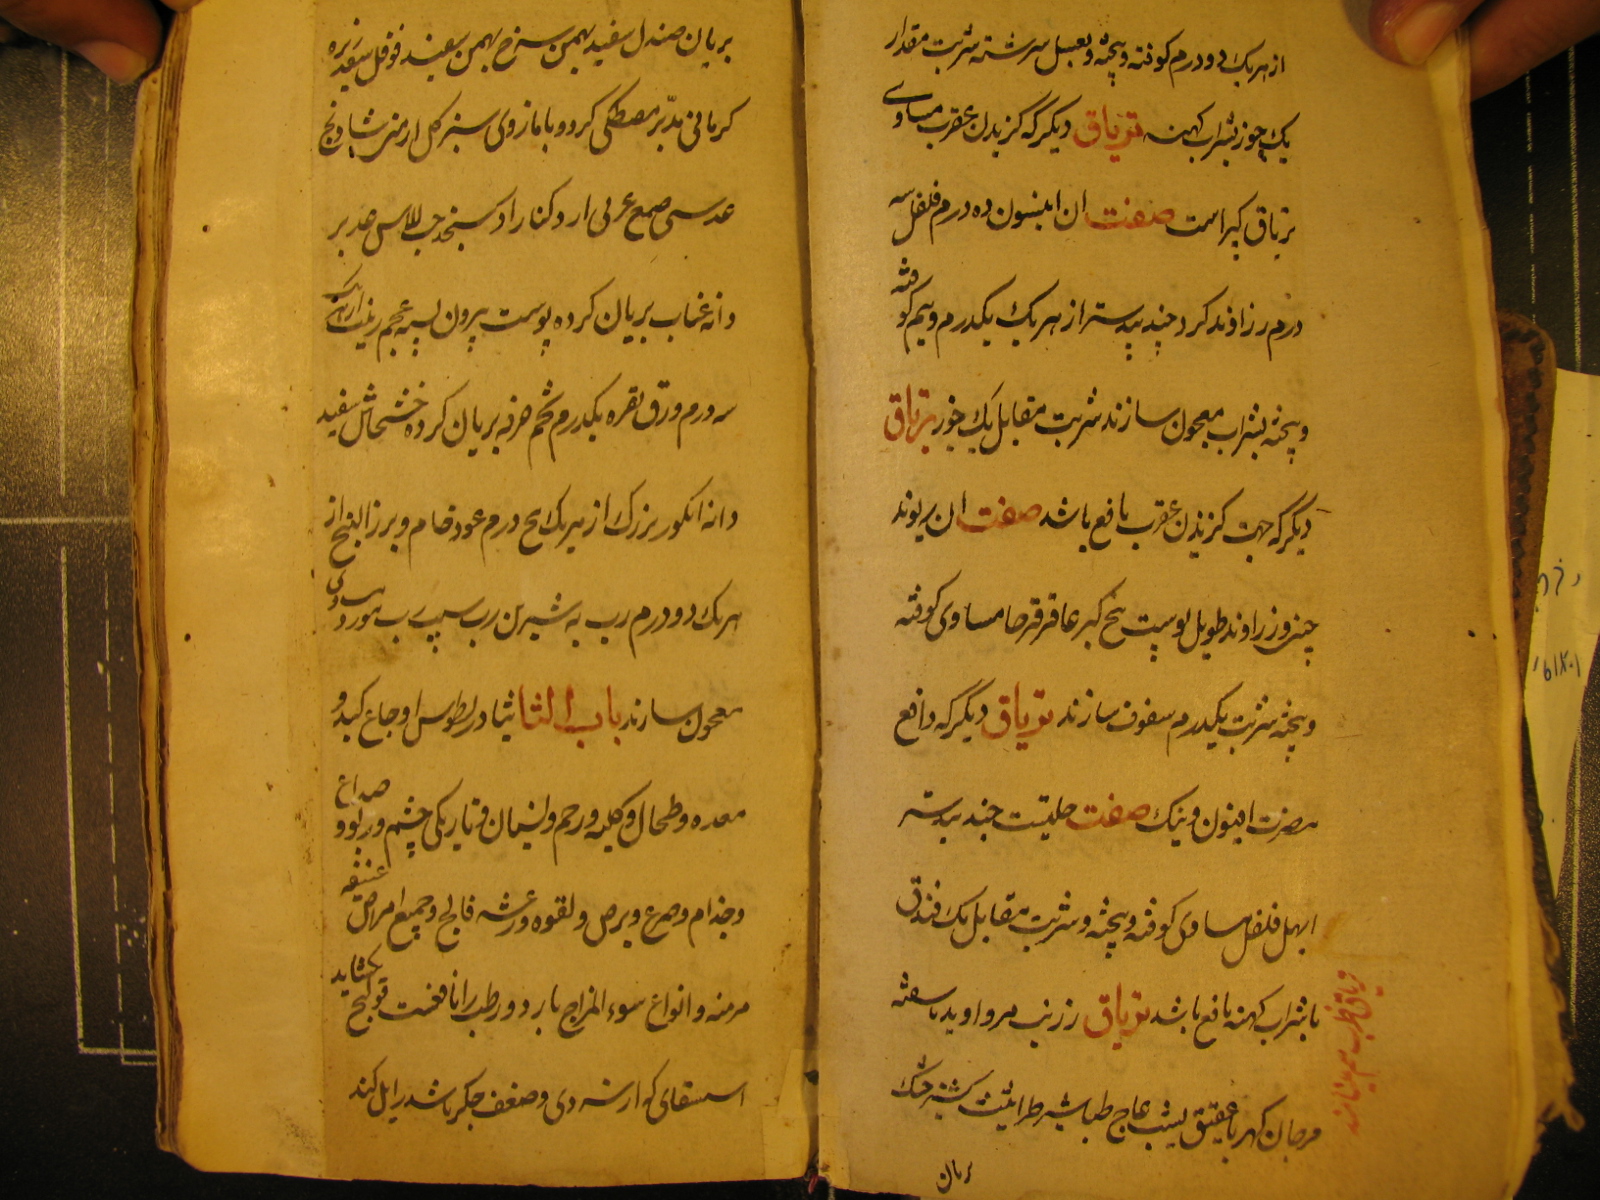 از هر یک دو درم کوفته و بیخته و بعسل سرشته شربت مقدار
یک جوز بشراب کهنه تریاق دیگر که گزیدن عقرب مساوی
تریاق کبیر است صفت ان انیسون ده درم فلفل سه
درم زراوند کرد جند بیدستر از هر یک یکدرم و نیم کوفته
و بیخته بشراب معجون سازند شربت مقابل یک جوز تریاق
دیگر که جهت گزیدن عقرب نافع باشد صفت ان ریوند
چینی و زراوند طویل پوست بیخ کبر عاقرقرحا مساوی کوفته
و بیخته شربت یکدرم سفوف سازند تریاق دیگر که دافع
مضرت افیون و بنک صفت حلتیت جند بیدستر
ابهل فلفل مساوی کوفته و بیخته و شربت مقابل یک فندقی
با شراب کهنه نافع باشد تریاق زرنب مروارید ناسفته
مرجان کهربا عقیق یشب عاج طباشیر طراثیث کشنیز خشک
بریان
بریان صندل سفید بهمن سرخ بهمن سفید فوفل سفید زیره
کرمانی مدبر مصطکی کرد و با مازوی سبز گل ارمنی شادنج
عدسی صمغ عربی ارد کنار ارد سنجد حب الاس مدبر
دانه عناب بریان کرده پوست بیرون پسته عجم زبیب از هر یک
سه درم ورق نقره یکدرم تخم خرفه بریان کرده خشخاش سفید
دانه انکور بزرک از هر یک پنج درم عود خام و بزر البنج از
هر یک دو درم رب به شیرین رب سیب رب مورد مساوی
معجون سازند باب الثا ثیادریطوس اوجاع کبد و
معده و طحال و کلیه و رحم و نسیان و تاریکی چشم و ربو و صداع
و جذام و صرع و برص و لقوه و رعشه فالج و جمیع امراض عتیقه
مزمنه و انواع سوء المزاج بارد و رطب را نافعست قولنج بکشاید
استسقای که از سردی و ضعف جکر باشد زایل کند